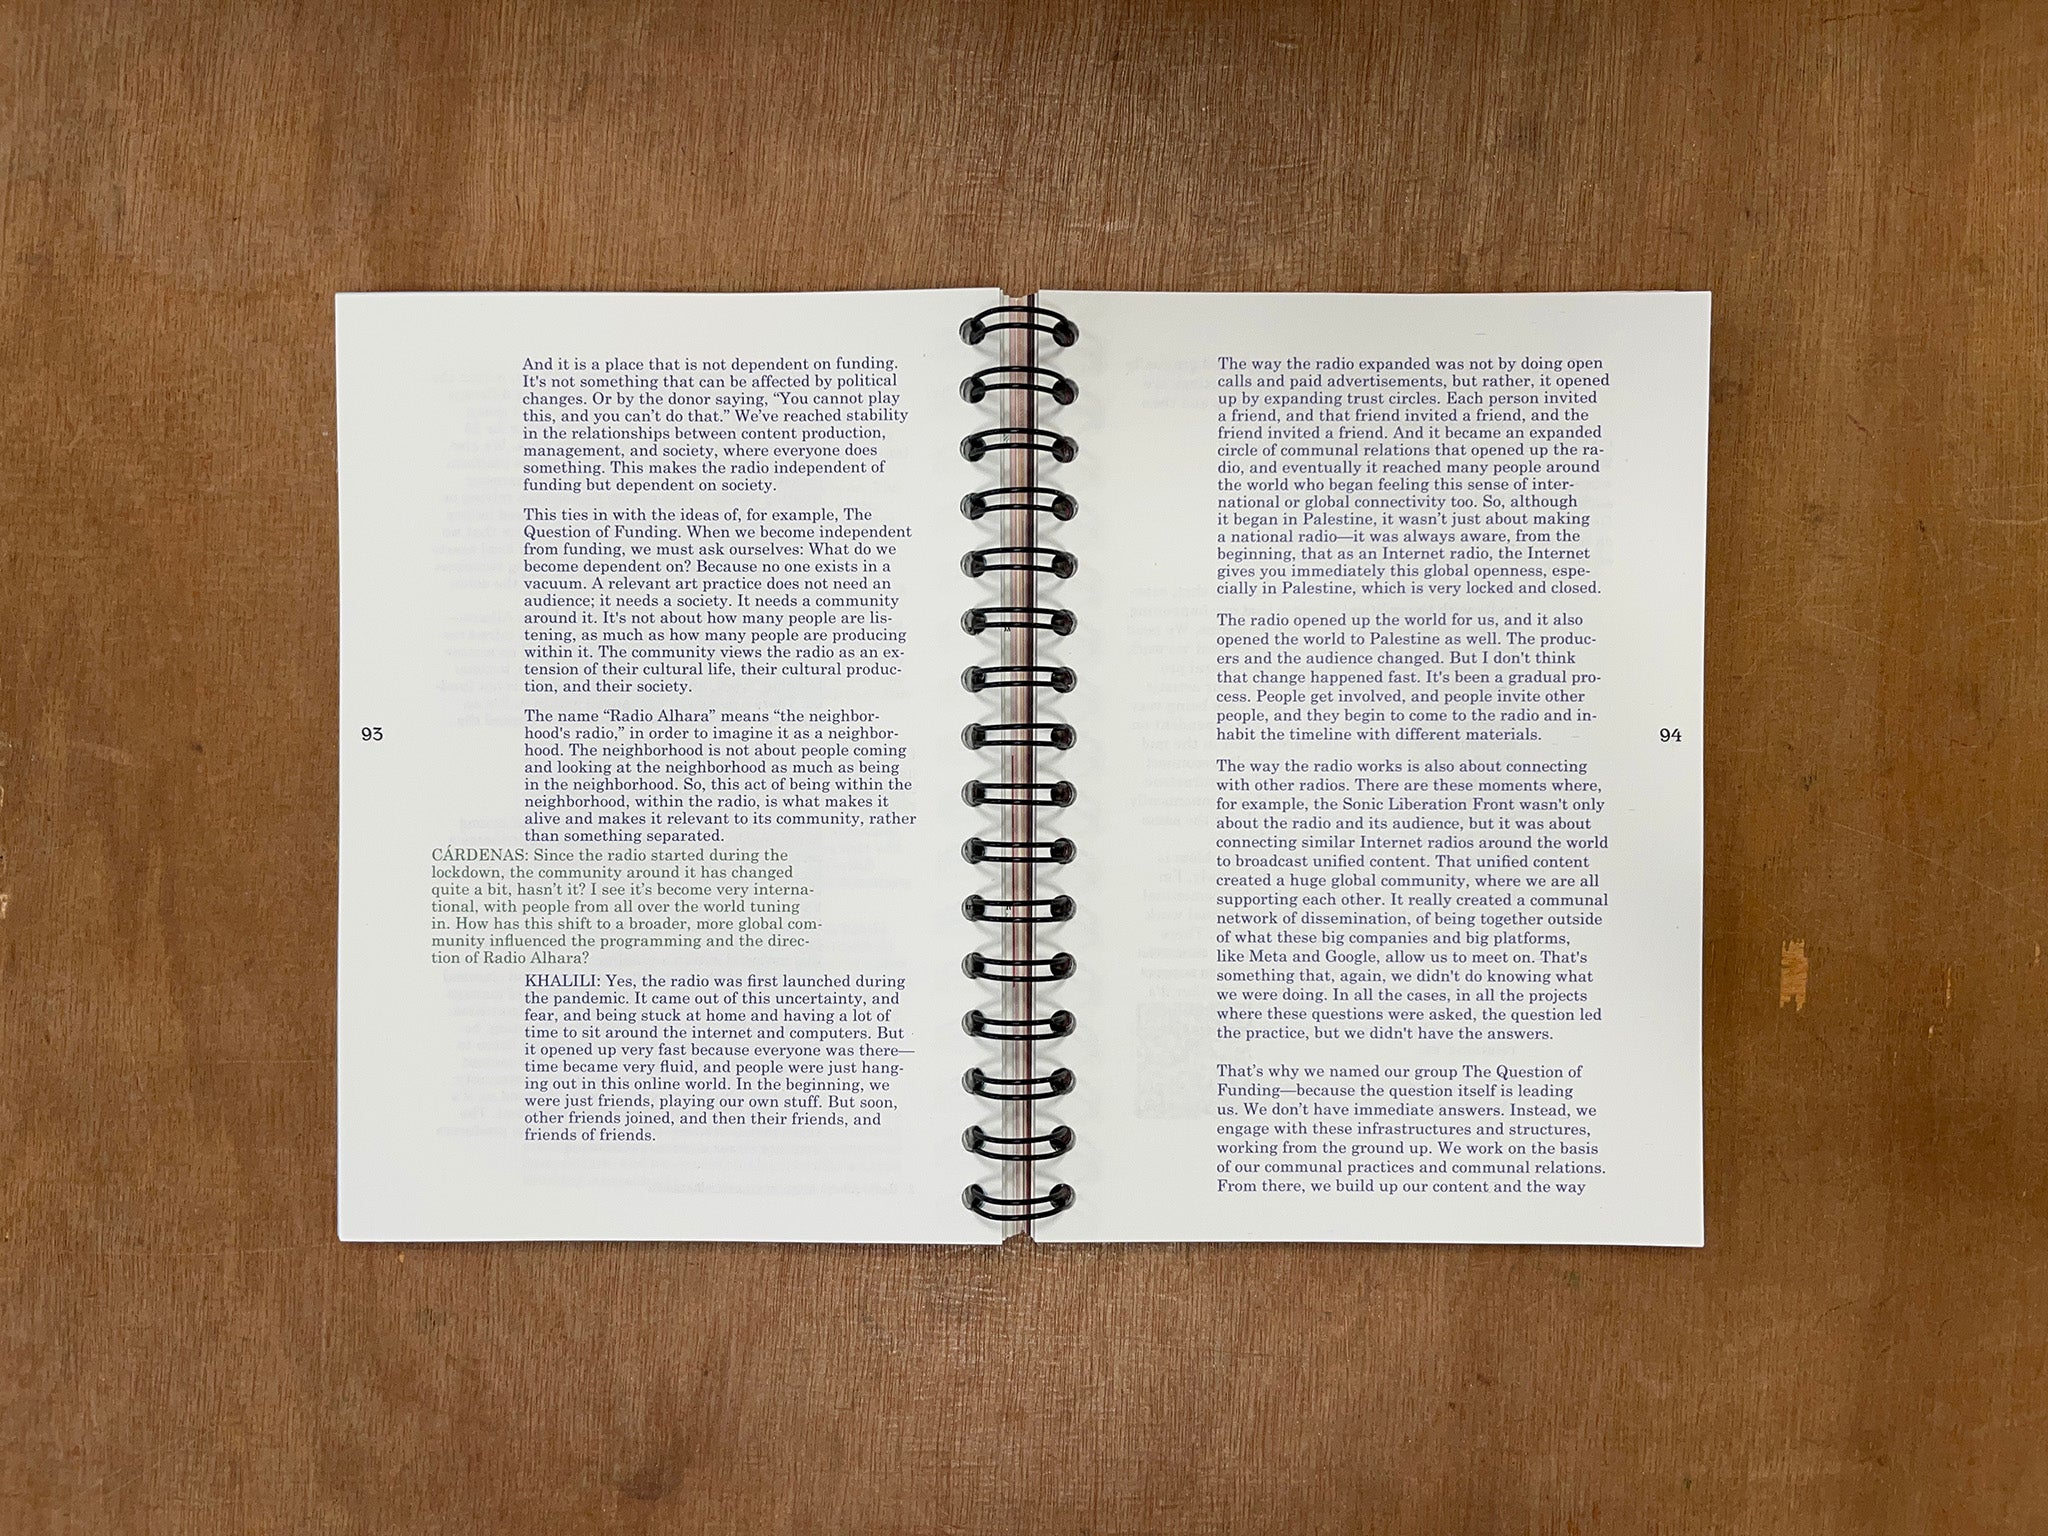 And it is a place that is not dependent on funding.
It's not something that can be affected by political
changes. Or by the donor saying, “You cannot play
this, and you can’t do that.” We’ve reached stability
in the relationships between content production,
management, and society, where everyone does
something. This makes the radio independent of
funding but dependent on society.
This ties in with the ideas of, for example, The
Question of Funding. When we become independent
from funding, we must ask ourselves: What do we
become dependent on? Because no one exists in a
vacuum. A relevant art practice does not need an
audience; it needs a society. It needs a community
around it. It's not about how many people are lis-
tening, as much as how many people are producing
within it. The community views the radio as an ex-
tension of their cultural life, their cultural produc-
tion, and their society.
The name “Radio Alhara” means “the neighbor-
hood's radio,” in order to imagine it as a neighbor-
hood. The neighborhood is not about people coming
and looking at the neighborhood as much as being
in the neighborhood. So, this act of being within the
neighborhood, within the radio, is what makes it
alive and makes it relevant to its community, rather
than something separated.
CÁRDENAS: Since the radio started during the
lockdown, the community around it has changed
quite a bit, hasn’t it? I see it’s become very interna-
tional, with people from all over the world tuning
in. How has this shift to a broader, more global com-
munity influenced the programming and the direc-
tion of Radio Alhara?
KHALILI: Yes, the radio was first launched during
the pandemic. It came out of this uncertainty, and
fear, and being stuck at home and having a lot of
time to sit around the internet and computers. But
it opened up very fast because everyone was there—
time became very fluid, and people were just hang-
ing out in this online world. In the beginning, we
were just friends, playing our own stuff. But soon,
other friends joined, and then their friends, and
friends of friends.
93
The way the radio expanded was not by doing open
calls and paid advertisements, but rather, it opened
up by expanding trust circles. Each person invited
a friend, and that friend invited a friend, and the
friend invited a friend. And it became an expanded
circle of communal relations that opened up the ra-
dio, and eventually it reached many people around
the world who began feeling this sense of inter-
national or global connectivity too. So, although
it began in Palestine, it wasn’t just about making
a national radio—it was always aware, from the
beginning, that as an Internet radio, the Internet
gives you immediately this global openness, espe-
cially in Palestine, which is very locked and closed.
The radio opened up the world for us, and it also
opened the world to Palestine as well. The produc-
ers and the audience changed. But I don't think
that change happened fast. It's been a gradual pro-
cess. People get involved, and people invite other
people, and they begin to come to the radio and in-
habit the timeline with different materials.
The way the radio works is also about connecting
with other radios. There are these moments where,
for example, the Sonic Liberation Front wasn't only
about the radio and its audience, but it was about
connecting similar Internet radios around the world
to broadcast unified content. That unified content
created a huge global community, where we are all
supporting each other. It really created a communal
network of dissemination, of being together outside
of what these big companies and big platforms,
like Meta and Google, allow us to meet on. That's
something that, again, we didn't do knowing what
we were doing. In all the cases, in all the projects
where these questions were asked, the question led
the practice, but we didn't have the answers.
That’s why we named our group The Question of
Funding—because the question itself is leading
us. We don’t have immediate answers. Instead, we
engage with these infrastructures and structures,
working from the ground up. We work on the basis
of our communal practices and communal relations.
From there, we build up our content and the way
94